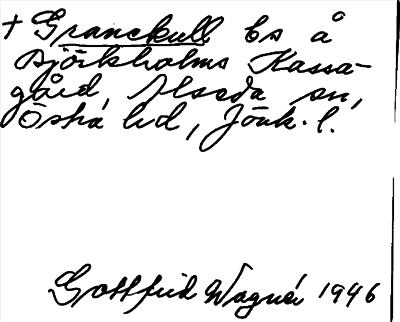 + Granekull bs å
Björkholms Kassa-
gård, Alseda sn,
Östra hd, Jönk. l.
Gottfrid Wagnér 1946